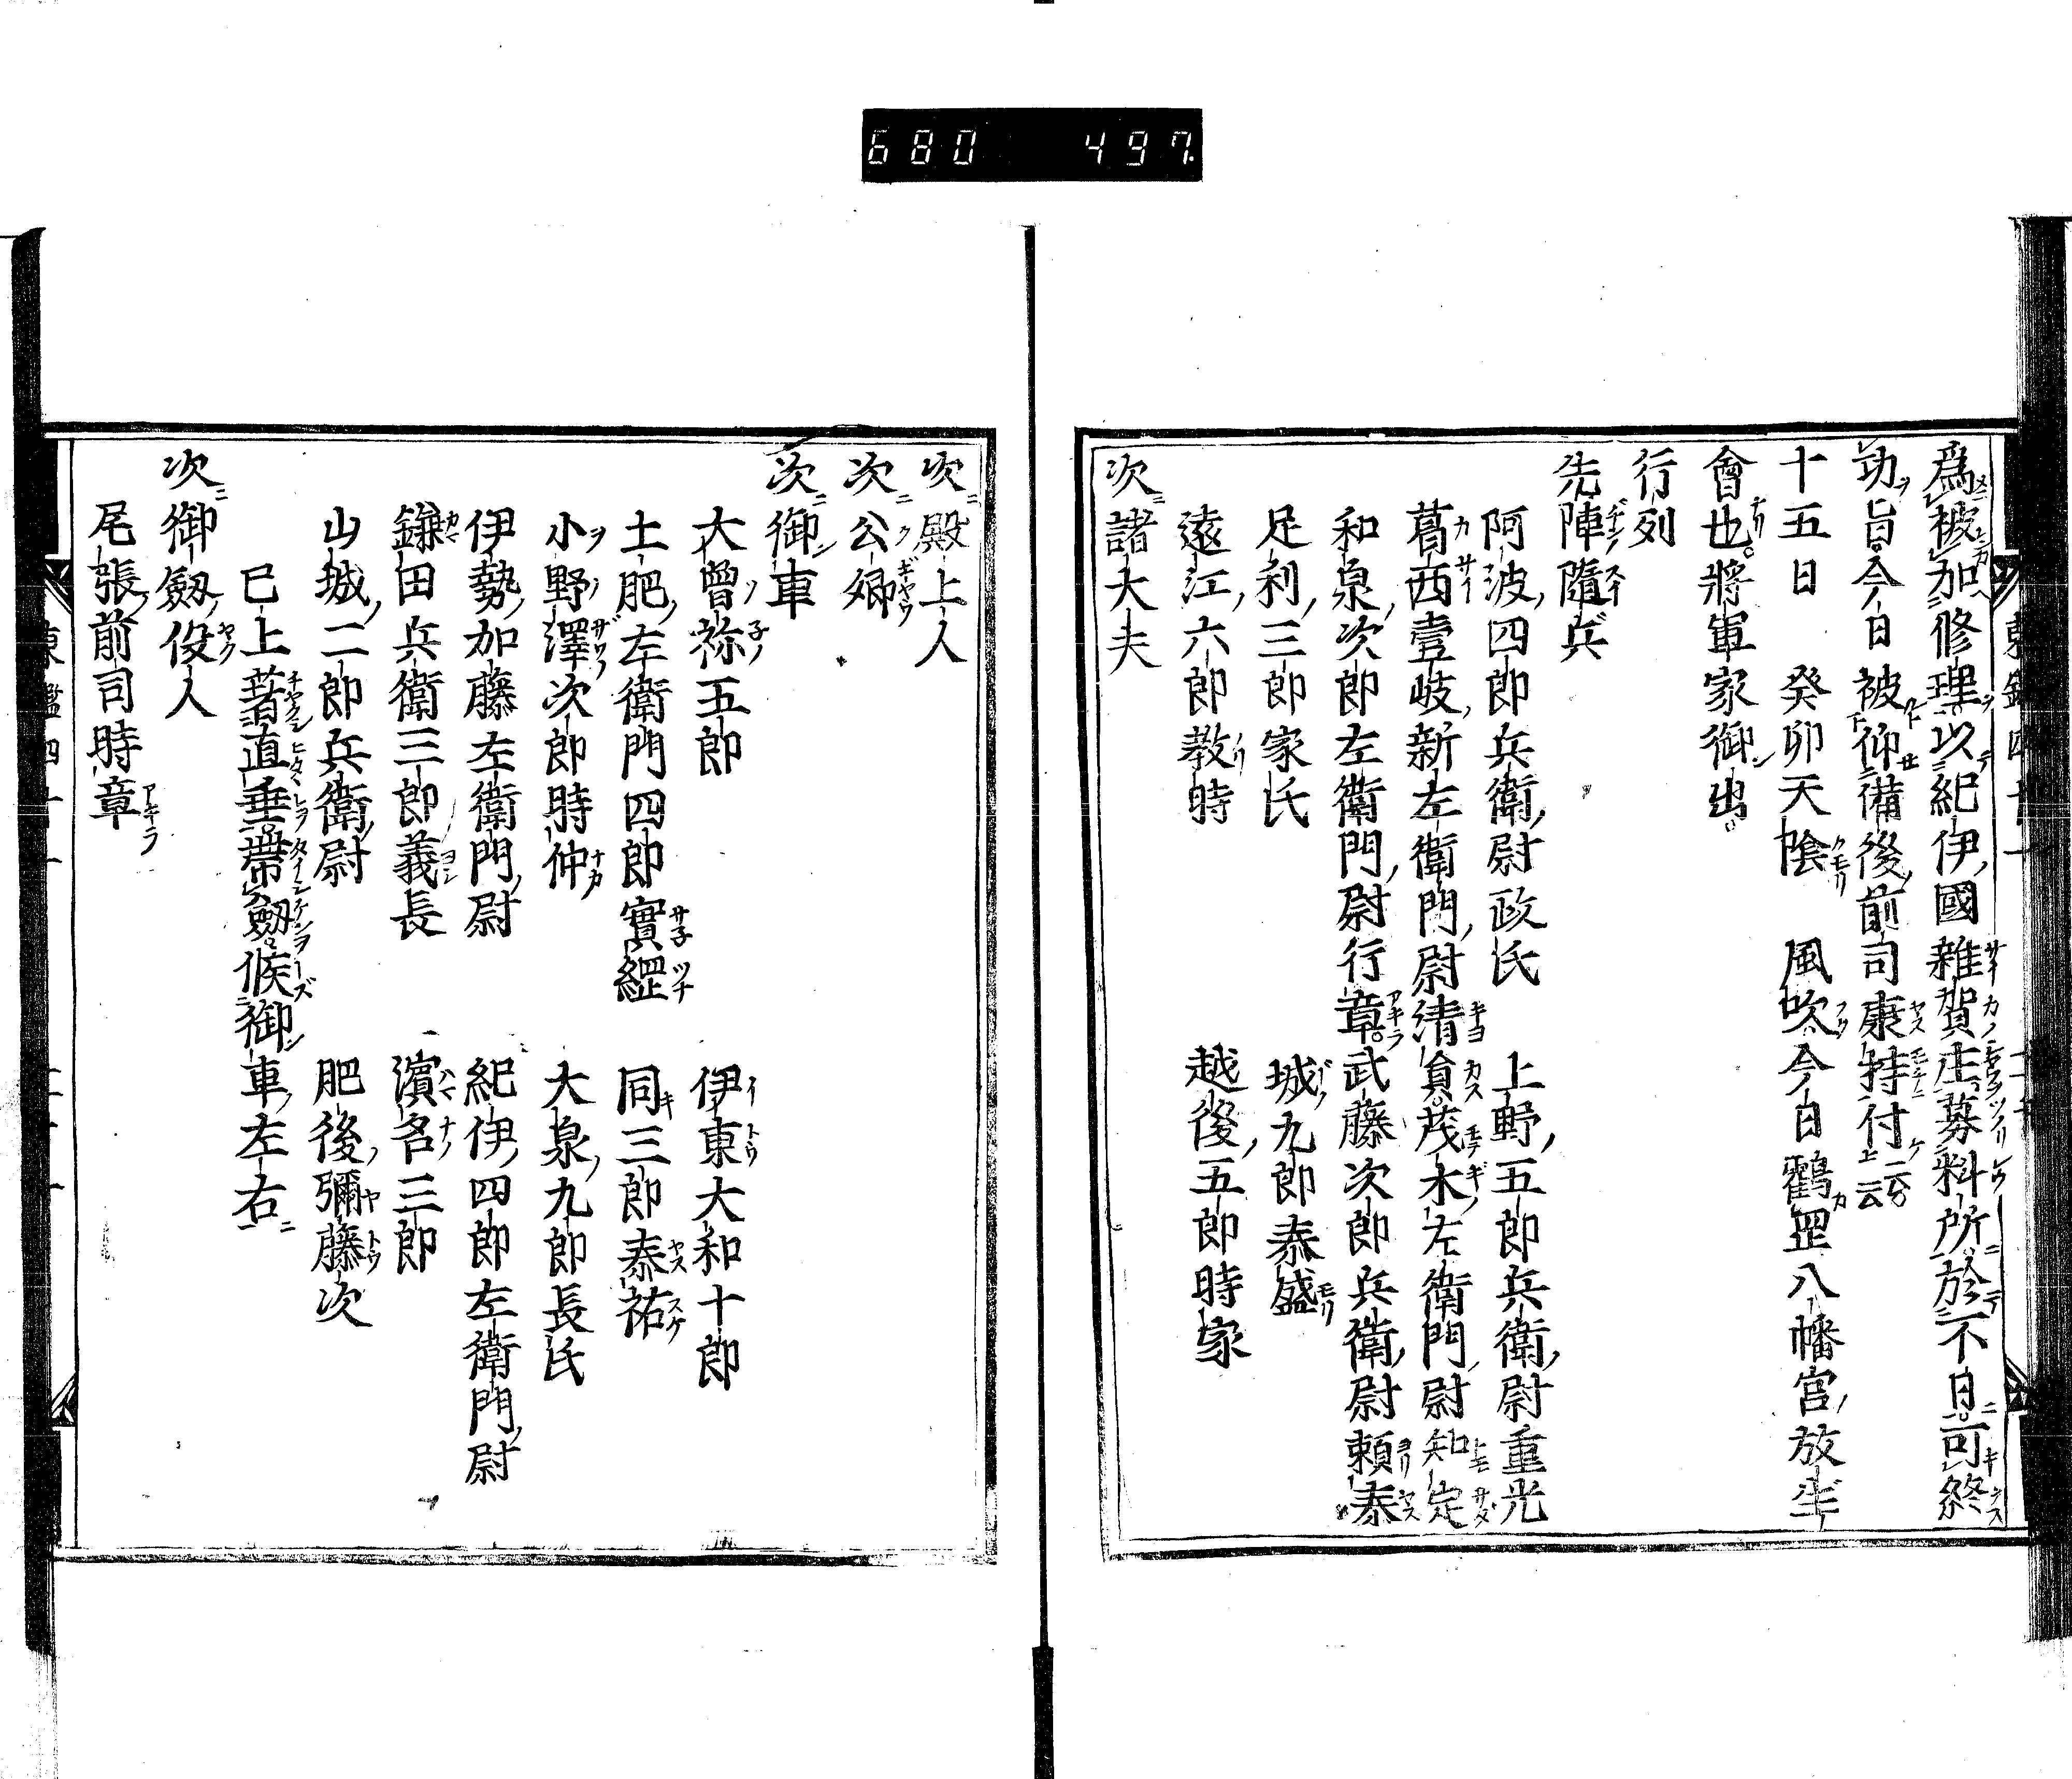 680 497.
爲被加修理以紀伊國雜賀庄募料所於不日可終
功旨今日被仰備後前司康持付云云
十五日 癸卯天陰 風吹今日鶴罡八幡宮放生
會也將軍家御出
行列
先陣隨兵
阿波四郎兵衛尉政氏 上野五郎兵衛尉重光
葛西壹岐新左衛門尉清員茂木左衛門尉知定
和泉次郎左衛門尉行章武藤次郎兵衛尉頼泰
足利三郎家氏 城九郎泰盛
遠江六郎教時 越後五郎時家
次諸大夫
次殿上人
次公卿
次御車
大曽祢五郎 伊東大和十郎
土肥左衛門四郎實綱 同三郎泰祐
小野澤次郎時仲 大泉九郎長氏
伊勢加藤左衛門尉 紀伊四郎左衛門尉
鎌田兵衛三郎義長 濱名三郎
山城二郎兵衛尉 肥後彌藤次
已上著直垂帶劔候御車左右
次御劔役人
尾張前司時章